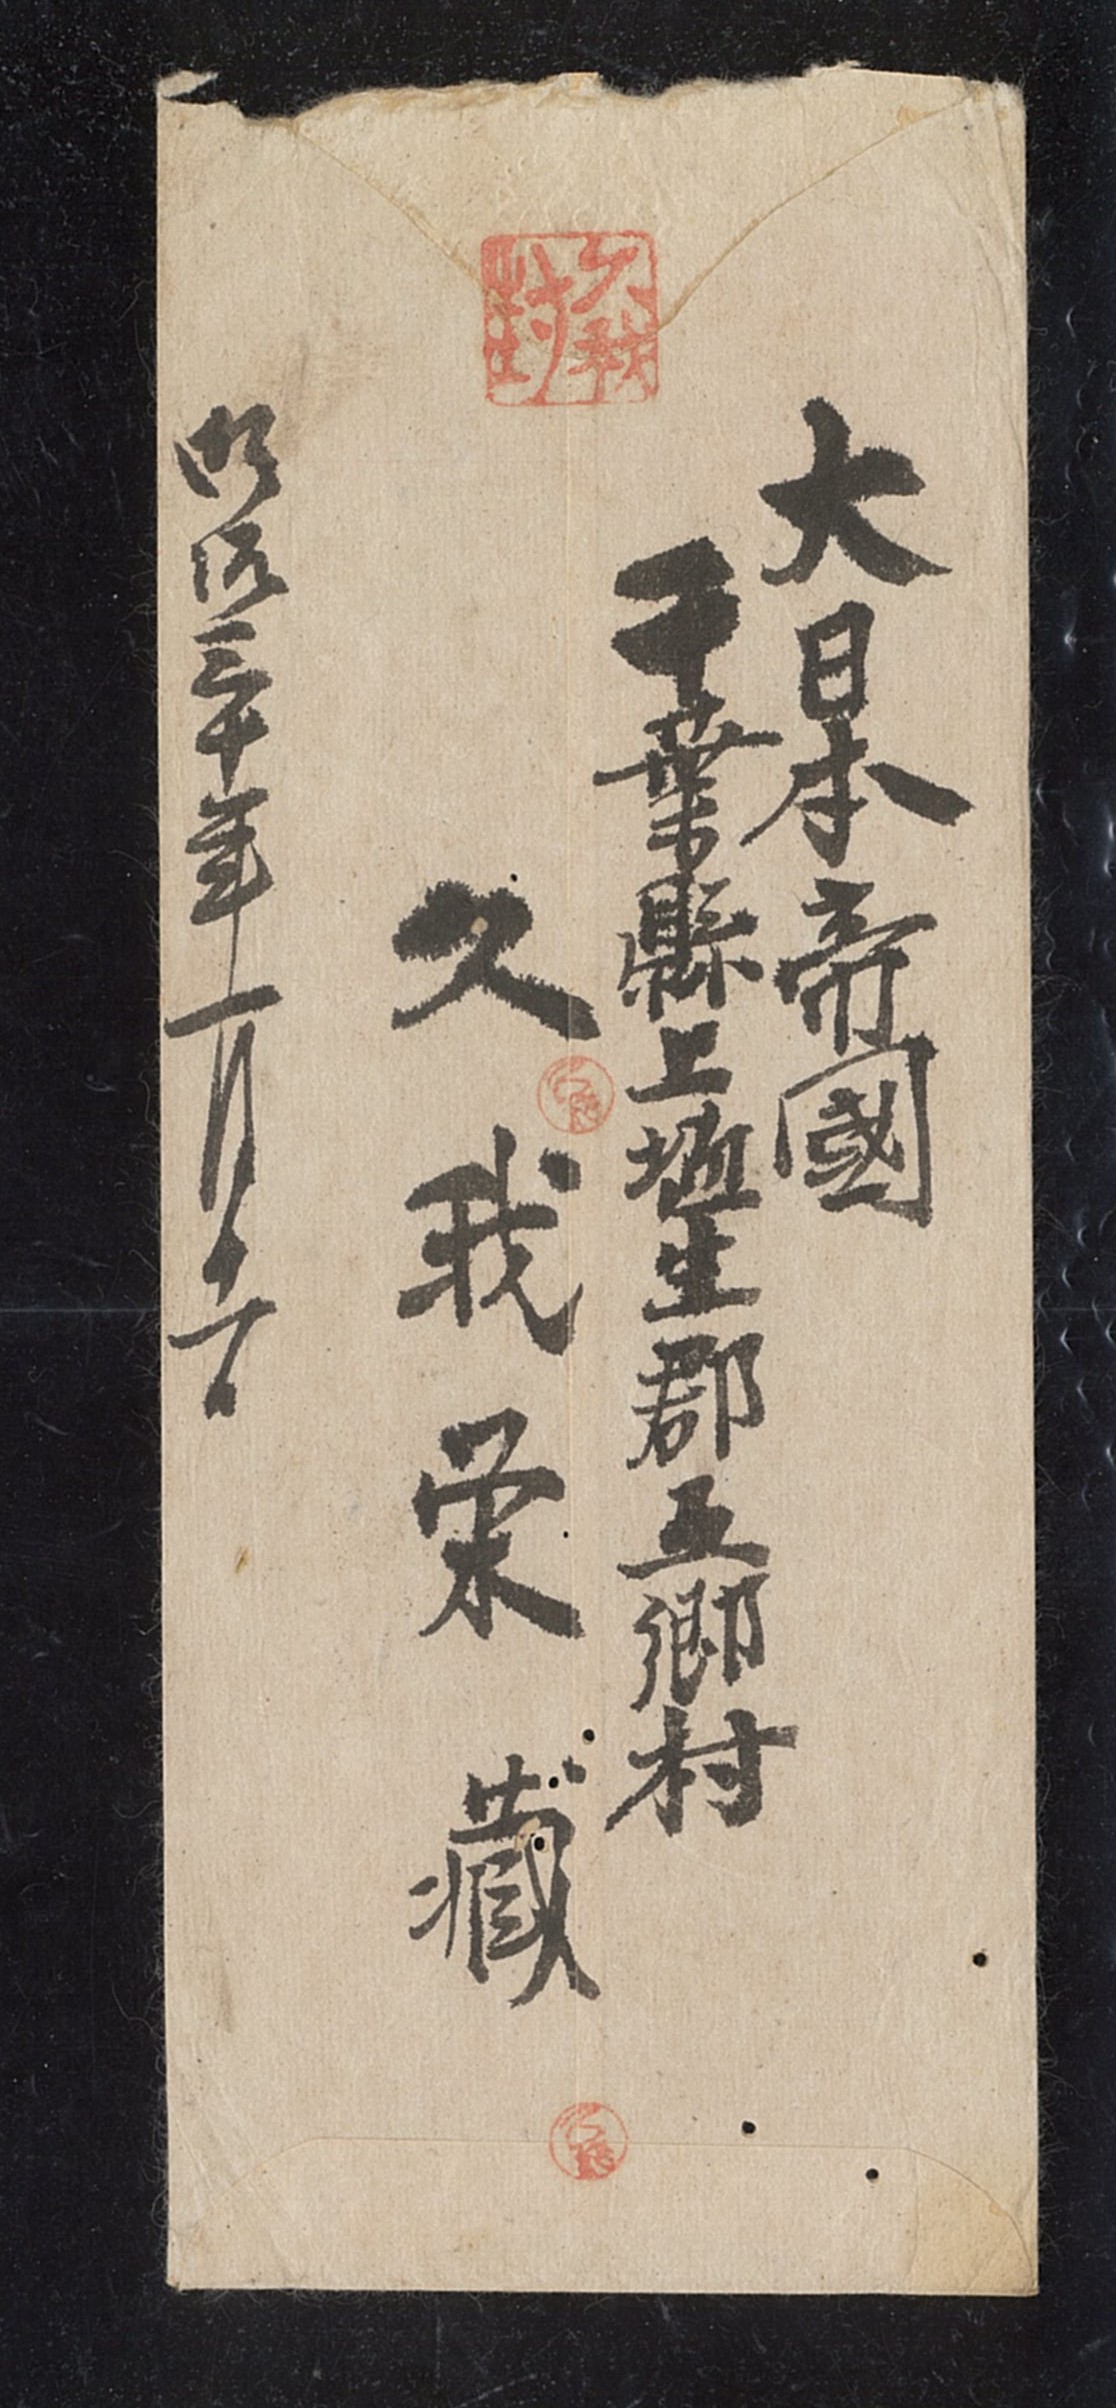 大日本帝國
千葉縣上埴生郡五郷村
久我栄藏
明治三十年一月十一
久我封